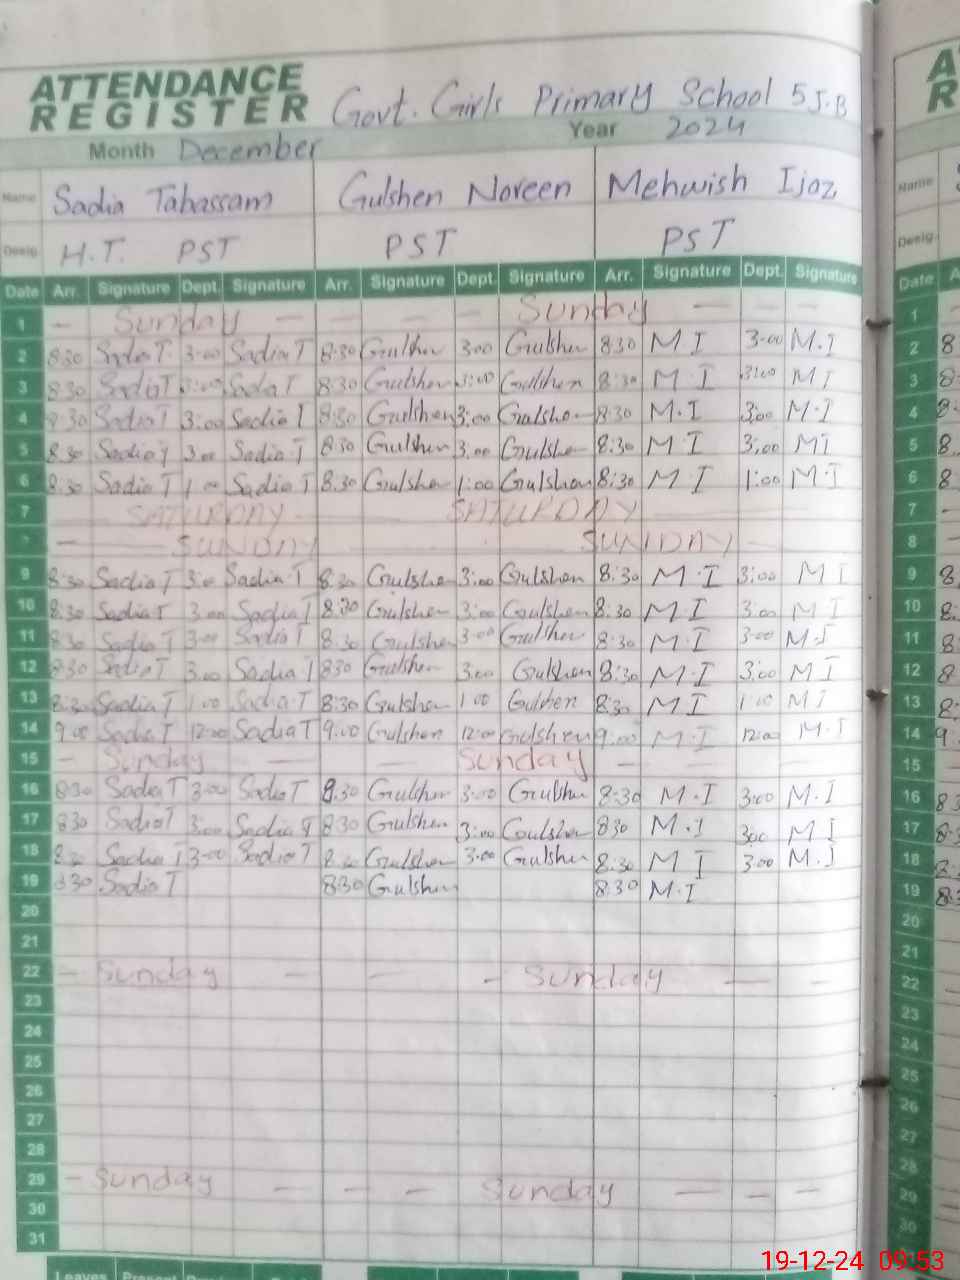 ATTENDANCE
REGISTER Govt. Girls Primary School 5 J.B
Month December Year 2024
Name Sadia Tabassam Gulshen Noreen Mehwish Ijaz
Desig. H.T. PST PST PST
Date Arr. Signature Dept. Signature Arr. Signature Dept. Signature Arr. Signature Dept. Signature
1 - Sunday - - - - Sunday - - -
2 8:30 Sadia T. 3:00 Sadia T 8:30 Gulshen 3:00 Gulshen 8:30 M I 3:00 M.I
3 8:30 Sadia T 3:00 Sadia T 8:30 Gulshen 3:00 Gulshen 8:30 M I 3:00 M I
4 8:30 Sadia T 3:00 Sadia T 8:30 Gulshen 3:00 Gulshen 8:30 M.I 3:00 M.I
5 8:30 Sadia T 3:00 Sadia T 8:30 Gulshen 3:00 Gulshen 8:30 M.I 3:00 MI
6 8:30 Sadia T 1:00 Sadia T 8:30 Gulshen 1:00 Gulshen 8:30 M I 1:00 M.I
7 SATURDAY SATURDAY
- SUNDAY SUNDAY -
9 8:30 Sadia T 3:00 Sadia T 8:30 Gulshen 3:00 Gulshen 8:30 M.I 3:00 M I
10 8:30 Sadia T 3:00 Sadia T 8:30 Gulshen 3:00 Gulshen 8:30 M I 3:00 M I
11 8:30 Sadia T 3:00 Sadia T 8:30 Gulshen 3:00 Gulshen 8:30 M I 3:00 M.I
12 8:30 Sadia T 3:00 Sadia T 8:30 Gulshen 3:00 Gulshen 8:30 M.I 3:00 M I
13 8:30 Sadia T 1:00 Sadia T 8:30 Gulshen 1:00 Gulshen 8:30 M I 1:00 M I
14 9:00 Sadia T 12:00 Sadia T 9:00 Gulshen 12:00 Gulshen 9:00 M.I 12:00 M.I
15 - Sunday - - Sunday -
16 8:30 Sadia T 3:00 Sadia T 8:30 Gulshen 3:00 Gulshen 8:30 M.I 3:00 M.I
17 8:30 Sadia T 3:00 Sadia T 8:30 Gulshen 3:00 Gulshen 8:30 M.I 3:00 M I
18 8:30 Sadia T 3:00 Sadia T 8:30 Gulshen 3:00 Gulshen 8:30 M I 3:00 M.I
19 8:30 Sadia T 8:30 Gulshen 8:30 M.I
20
21
22 - Sunday - - - Sunday - -
23
24
25
26
27
28
29 - Sunday - - - Sunday - - -
30
31
Leaves Present
Name
Desig.
Date
1
2 8
3 8
4 8
5 8
6 8
7
8
9 8
10 8
11 8
12 8
13 8
14 9
15
16 8
17 8
18 8
19 8:3
20
21
22
23
24
25
26
27
28
29
30
19-12-24 09:53